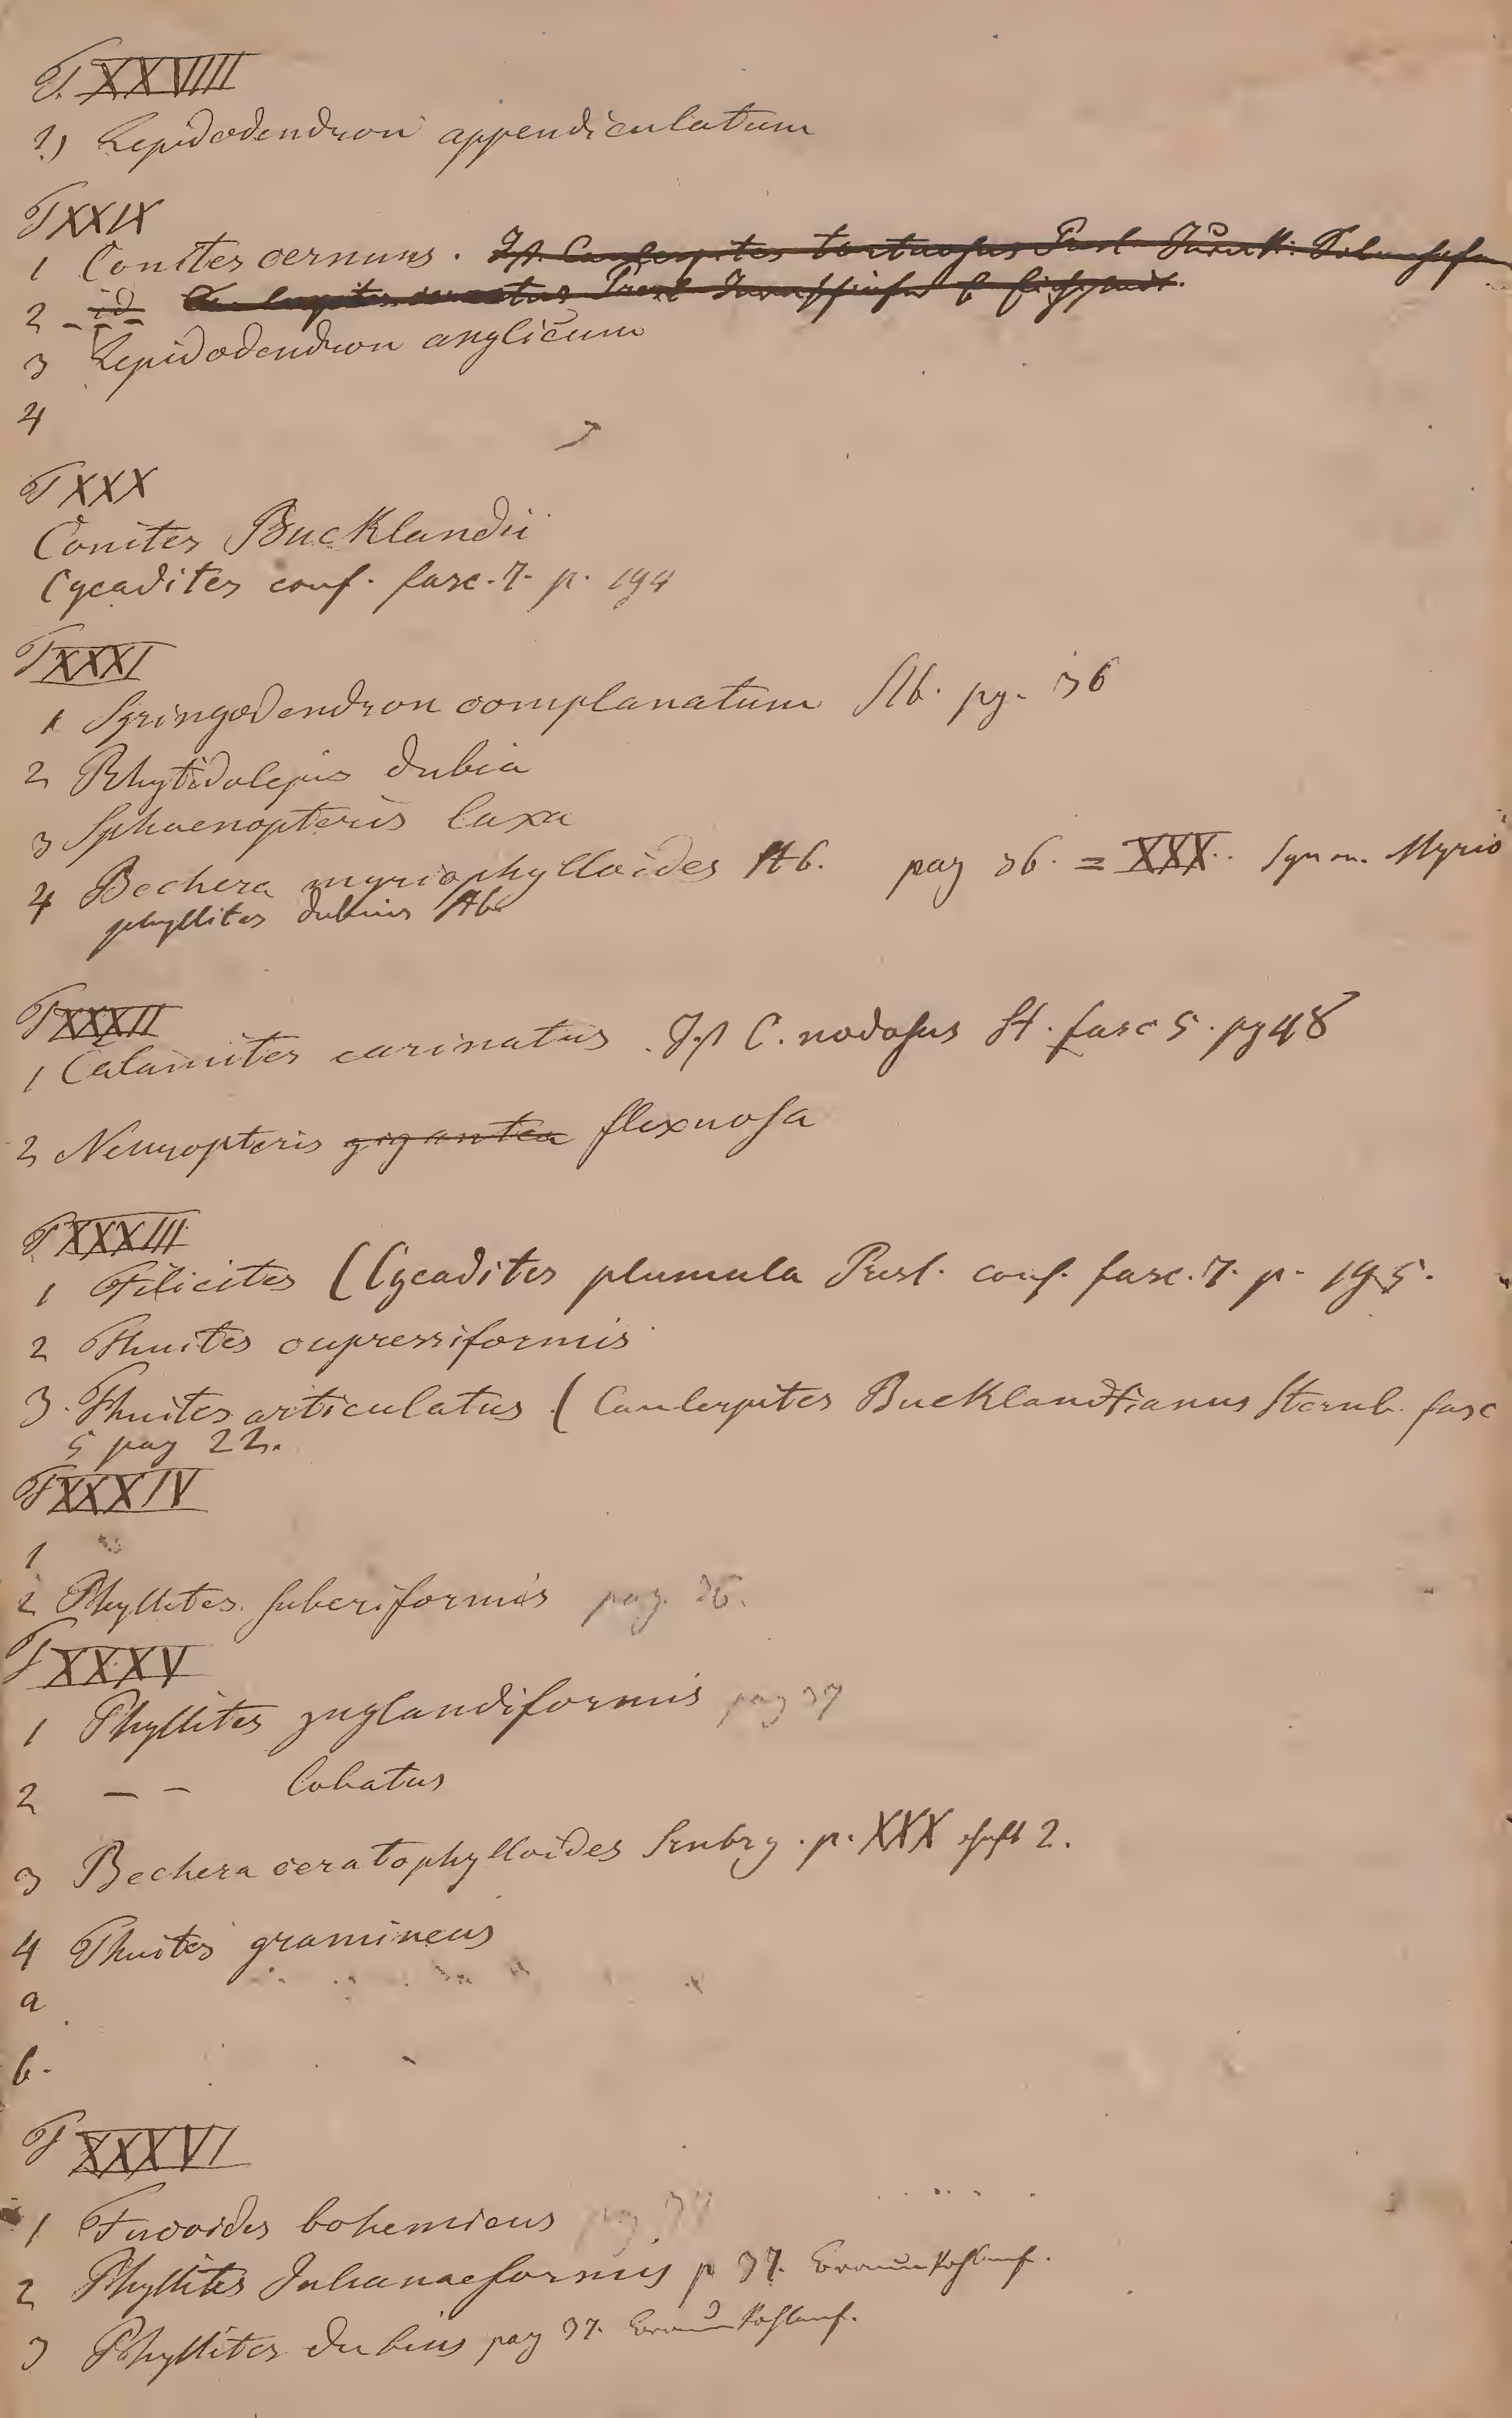 T. XXVIIII
1) Lepidodendron appendiculatum
T XXIX
1 Conites cernuus. Ist Caulerpites tortuosus Presl Jurak. Solenhofen
2 - id - Caulerpites Presl
3 Lepidodendron anglicum
4
T XXX
Conites Bucklandii
Cycadites conf. fasc. 7. p. 194
T XXXI
1 Syringodendron complanatum Stb. pg. 36
2 Rhytidolepis dubia
3 Sphaenopteris laxa
4 Bechera myriophylloides Stb. pag 36. = XXX. Synon. Myrio
phyllites dubius Stb
T XXXII
1 Calamites carinatus. Ist C. nodosus St. fasc 5. pg 48
2 Neuropteris gigantea flexuosa
T XXXIII
1 Filicites (Cycadites plumula Presl. conf. fasc. 7. p. 195.
2 Thuites cupressiformis
3. Thuites articulatus (Caulerpites Bucklandianus Sternb. fasc
5 pag 22.
T XXXIV
1
2 Phyllites suberiformis pag. 36.
T XXXV
1 Phyllites juglandiformis pag 37
2 — — lobatus
3 Bechera ceratophylloides p. XXX Heft 2.
4 Thuites gramineus
a
b.
T XXXVI
1 Fucoides bohemicus pag. 37
2 Phyllites Julianaeformis p 37. Braunkohlenf.
3 Phyllites dubius pag 37. Braunkohlenf.